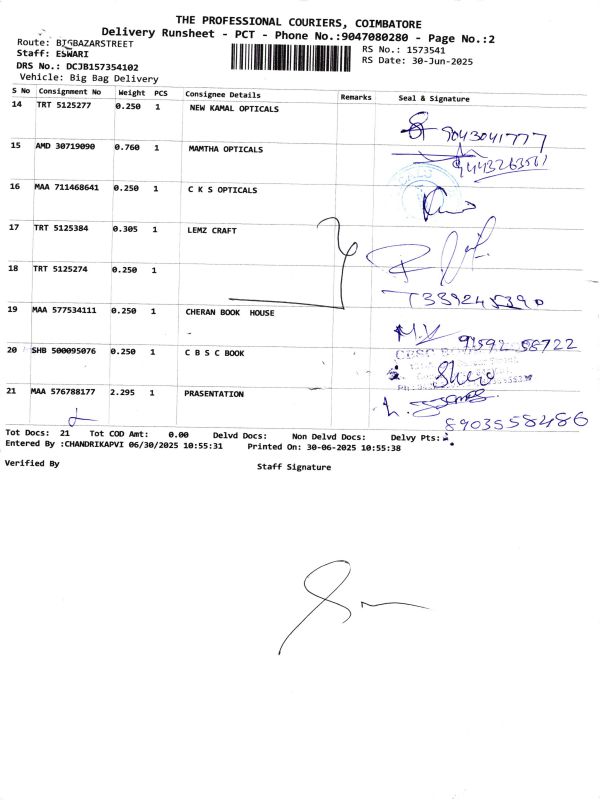 THE PROFESSIONAL COURIERS, COIMBATORE
Delivery Runsheet - PCT - Phone No.:9047080280 - Page No.:2
Route: BIGBAZARSTREET
RS No.: 1573541
Staff: ESWARI
RS Date: 30-Jun-2025
DRS No.: DCJB157354102
Vehicle: Big Bag Delivery
S No Consignment No Weight PCS Consignee Details Remarks Seal & Signature
14 TRT 5125277 0.250 1 NEW KAMAL OPTICALS
9043041777
15 AMD 30719090 0.760 1 MAMTHA OPTICALS
9443263561
16 MAA 711468641 0.250 1 C K S OPTICALS
17 TRT 5125384 0.305 1 LEMZ CRAFT
-
18 TRT 5125274 0.250 1
7339245390
19 MAA 577534111 0.250 1 CHERAN BOOK HOUSE
M.V 91592 58722
20 SHB 500095076 0.250 1 C B S C BOOK
21 MAA 576788177 2.295 1 PRASENTATION
8903558486
Tot Docs: 21 Tot COD Amt: 0.00 Delvd Docs: Non Delvd Docs: Delvy Pts:
Entered By :CHANDRIKAPVI 06/30/2025 10:55:31 Printed On: 30-06-2025 10:55:38
Verified By
Staff Signature